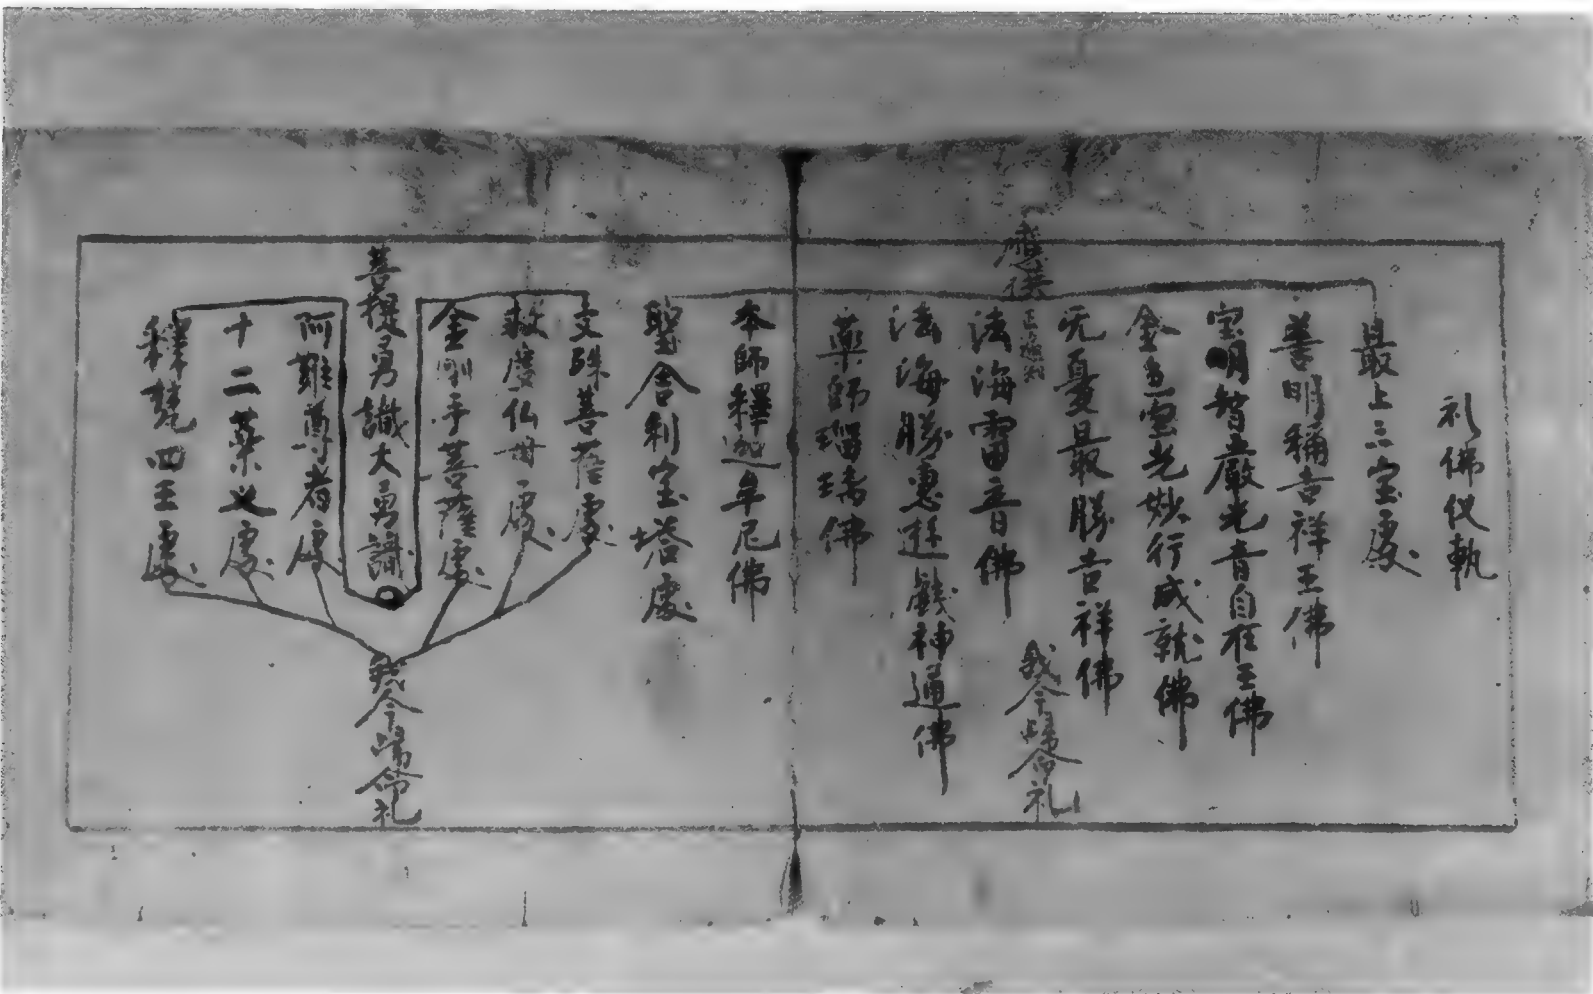 礼佛仪軌
最上三宝處
善明稱吉祥王佛
宝明智嚴光音自在王佛
金色宝光妙行成就佛
无憂最勝吉祥佛
應供
我今歸命礼
法海雷音佛
法海勝惠遊戲神通佛
藥師瑠璃佛
本師釋迦牟尼佛
聖舍利宝塔處
文殊菩薩處
救度仏母處
金剛手菩薩處
菩提勇識大勇識
我今歸命礼
阿難尊者處
十二藥叉處
釋梵四王處